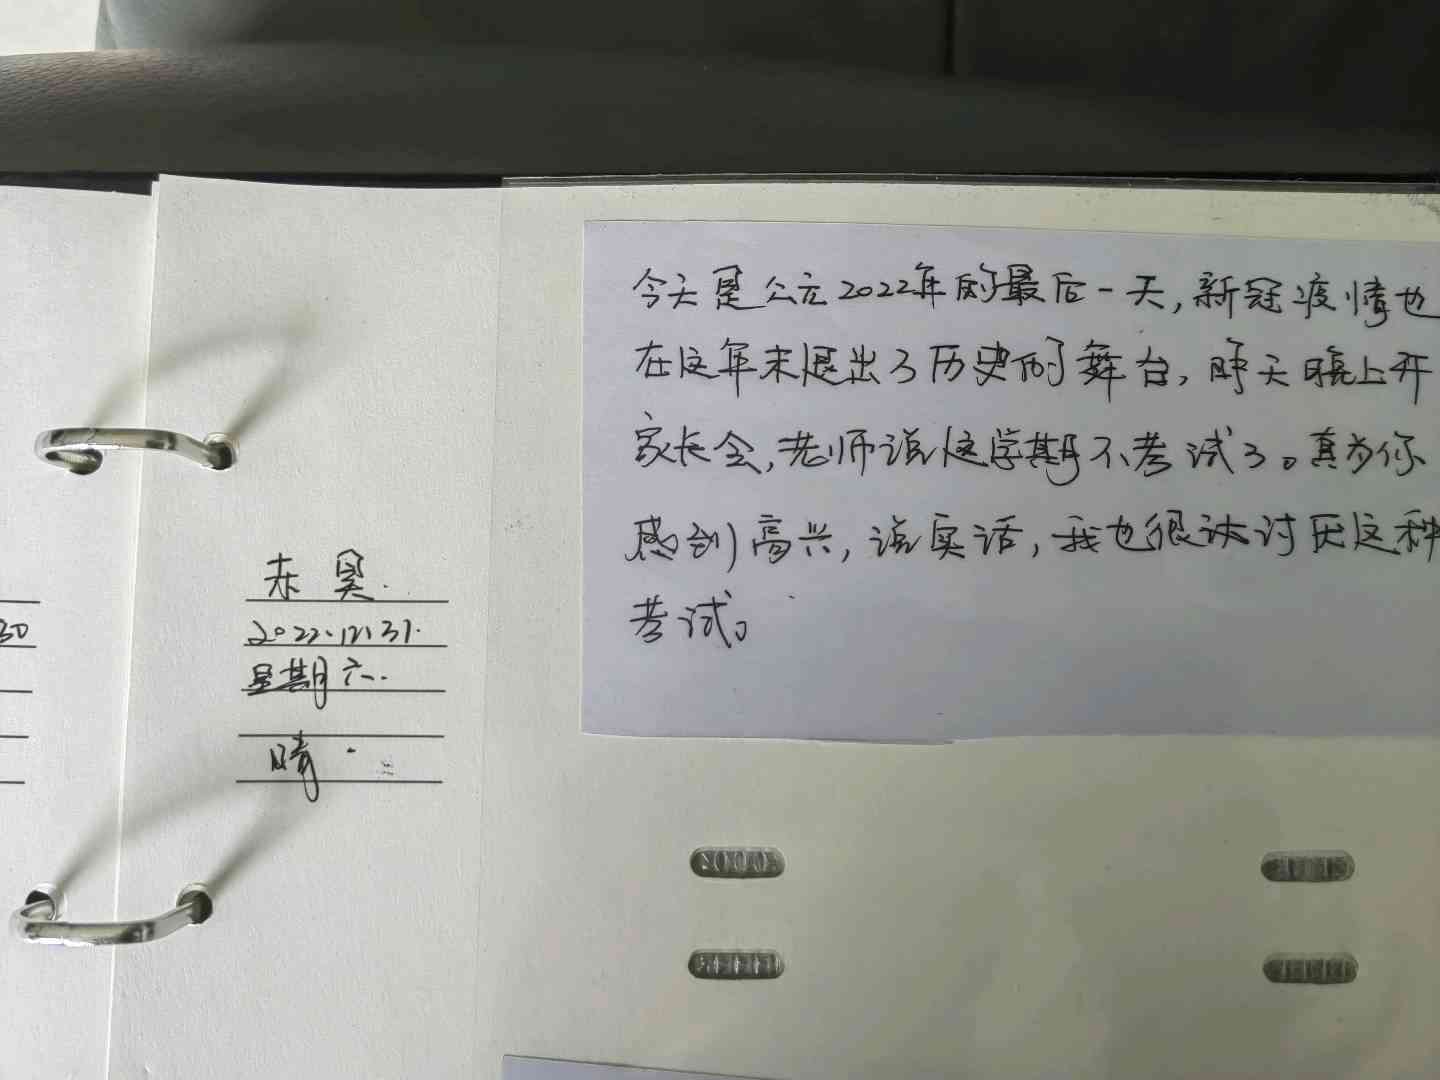 30
赤昊.
2022.12.31.
星期六.
晴.
今天是公元2022年的最后一天,新冠疫情也
在这年末退出了历史的舞台,昨天晚上开
家长会,老师说这学期不考试了。真为你
感到高兴,说实话,我也很讨厌这种
考试。